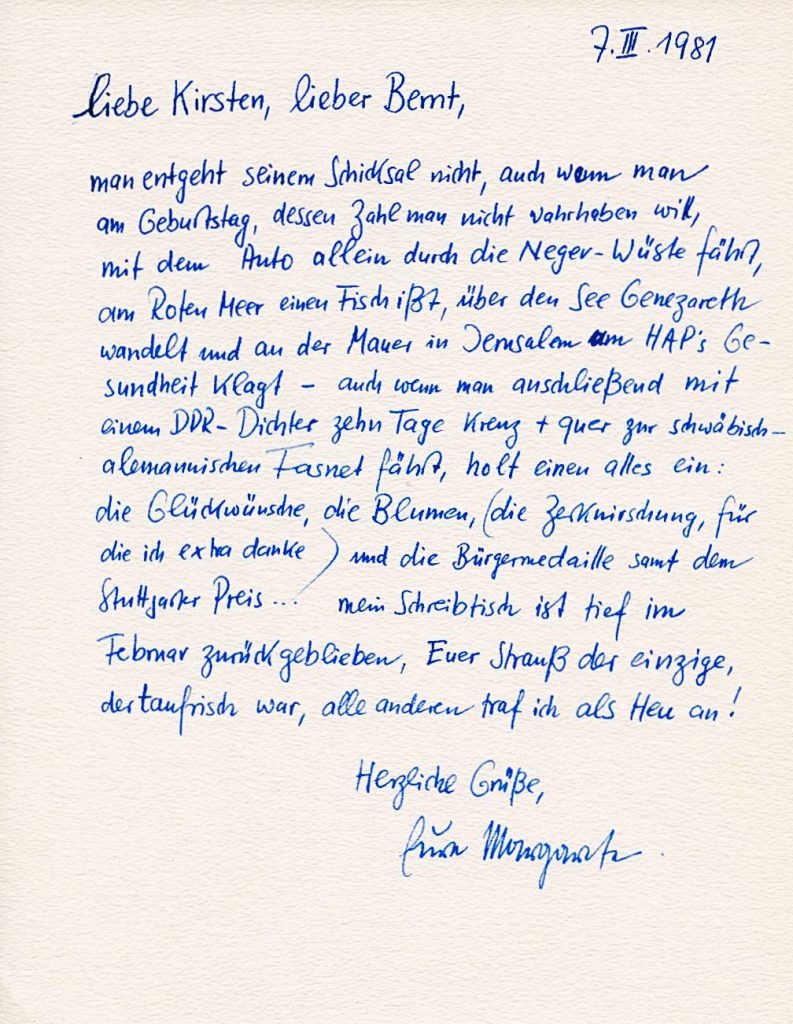 7.III.1981
liebe Kirsten, lieber Bernt,
man entgeht seinem Schicksal nicht, auch wenn man
am Geburtstag, dessen Zahl man nicht wahrhaben will,
mit dem Auto allein durch die Neger-Wüste fährt,
am Roten Meer einen Fisch ißt, über den See Genezareth
wandelt und an der Mauer in Jerusalem um HAP's Ge-
sundheit klagt - auch wenn man anschließend mit
einem DDR-Dichter zehn Tage kreuz + quer zur schwäbisch-
alemannischen Fasnet fährt, holt einen alles ein:
die Glückwünsche, die Blumen, (die Zerknirschung, für
die ich extra danke) und die Bürgermedaille samt dem
Stuttgarter Preis... mein Schreibtisch ist tief im
Februar zurückgeblieben, Euer Strauß der einzige,
der taufrisch war, alle anderen traf ich als Heu an!
Herzliche Grüße,
Eure Margarete